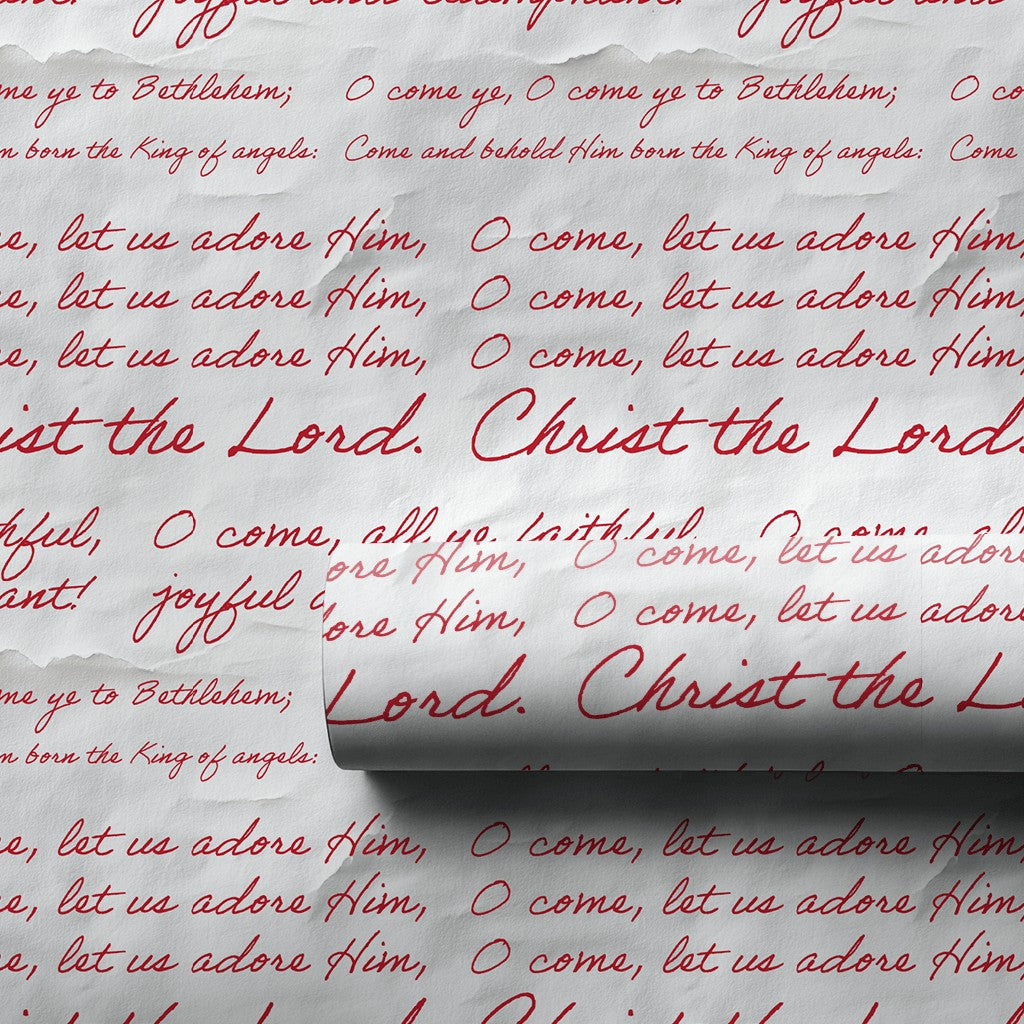 joyful and triumphant! joyful and
me ye to Bethlehem; O come ye, O come ye to Bethlehem; O co
born the King of angels: Come and behold Him born the King of angels: Come
let us adore Him, O come, let us adore Him,
let us adore Him, O come, let us adore Him,
let us adore Him, O come, let us adore Him,
ist the Lord. Christ the Lord.
hful, O come, all ye faithful, O come, all
ant! joyful
me ye to Bethlehem;
born the King of angels:
ore Him, O come, let us adore
ore Him, O come, let us adore
Lord. Christ the L
let us adore Him, O come, let us adore Him,
let us adore Him, O come, let us adore Him,
let us adore Him, O come, let us adore Him,